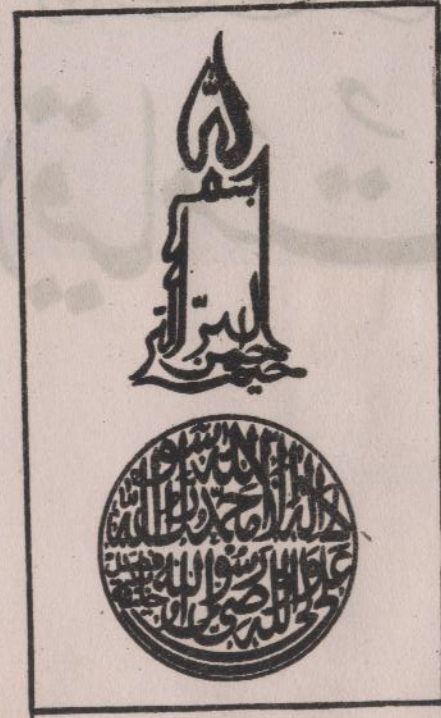 بسم الله الرحمن الرحیم
لا اله الا الله محمد رسول الله
علی ولی الله وصی رسول الله